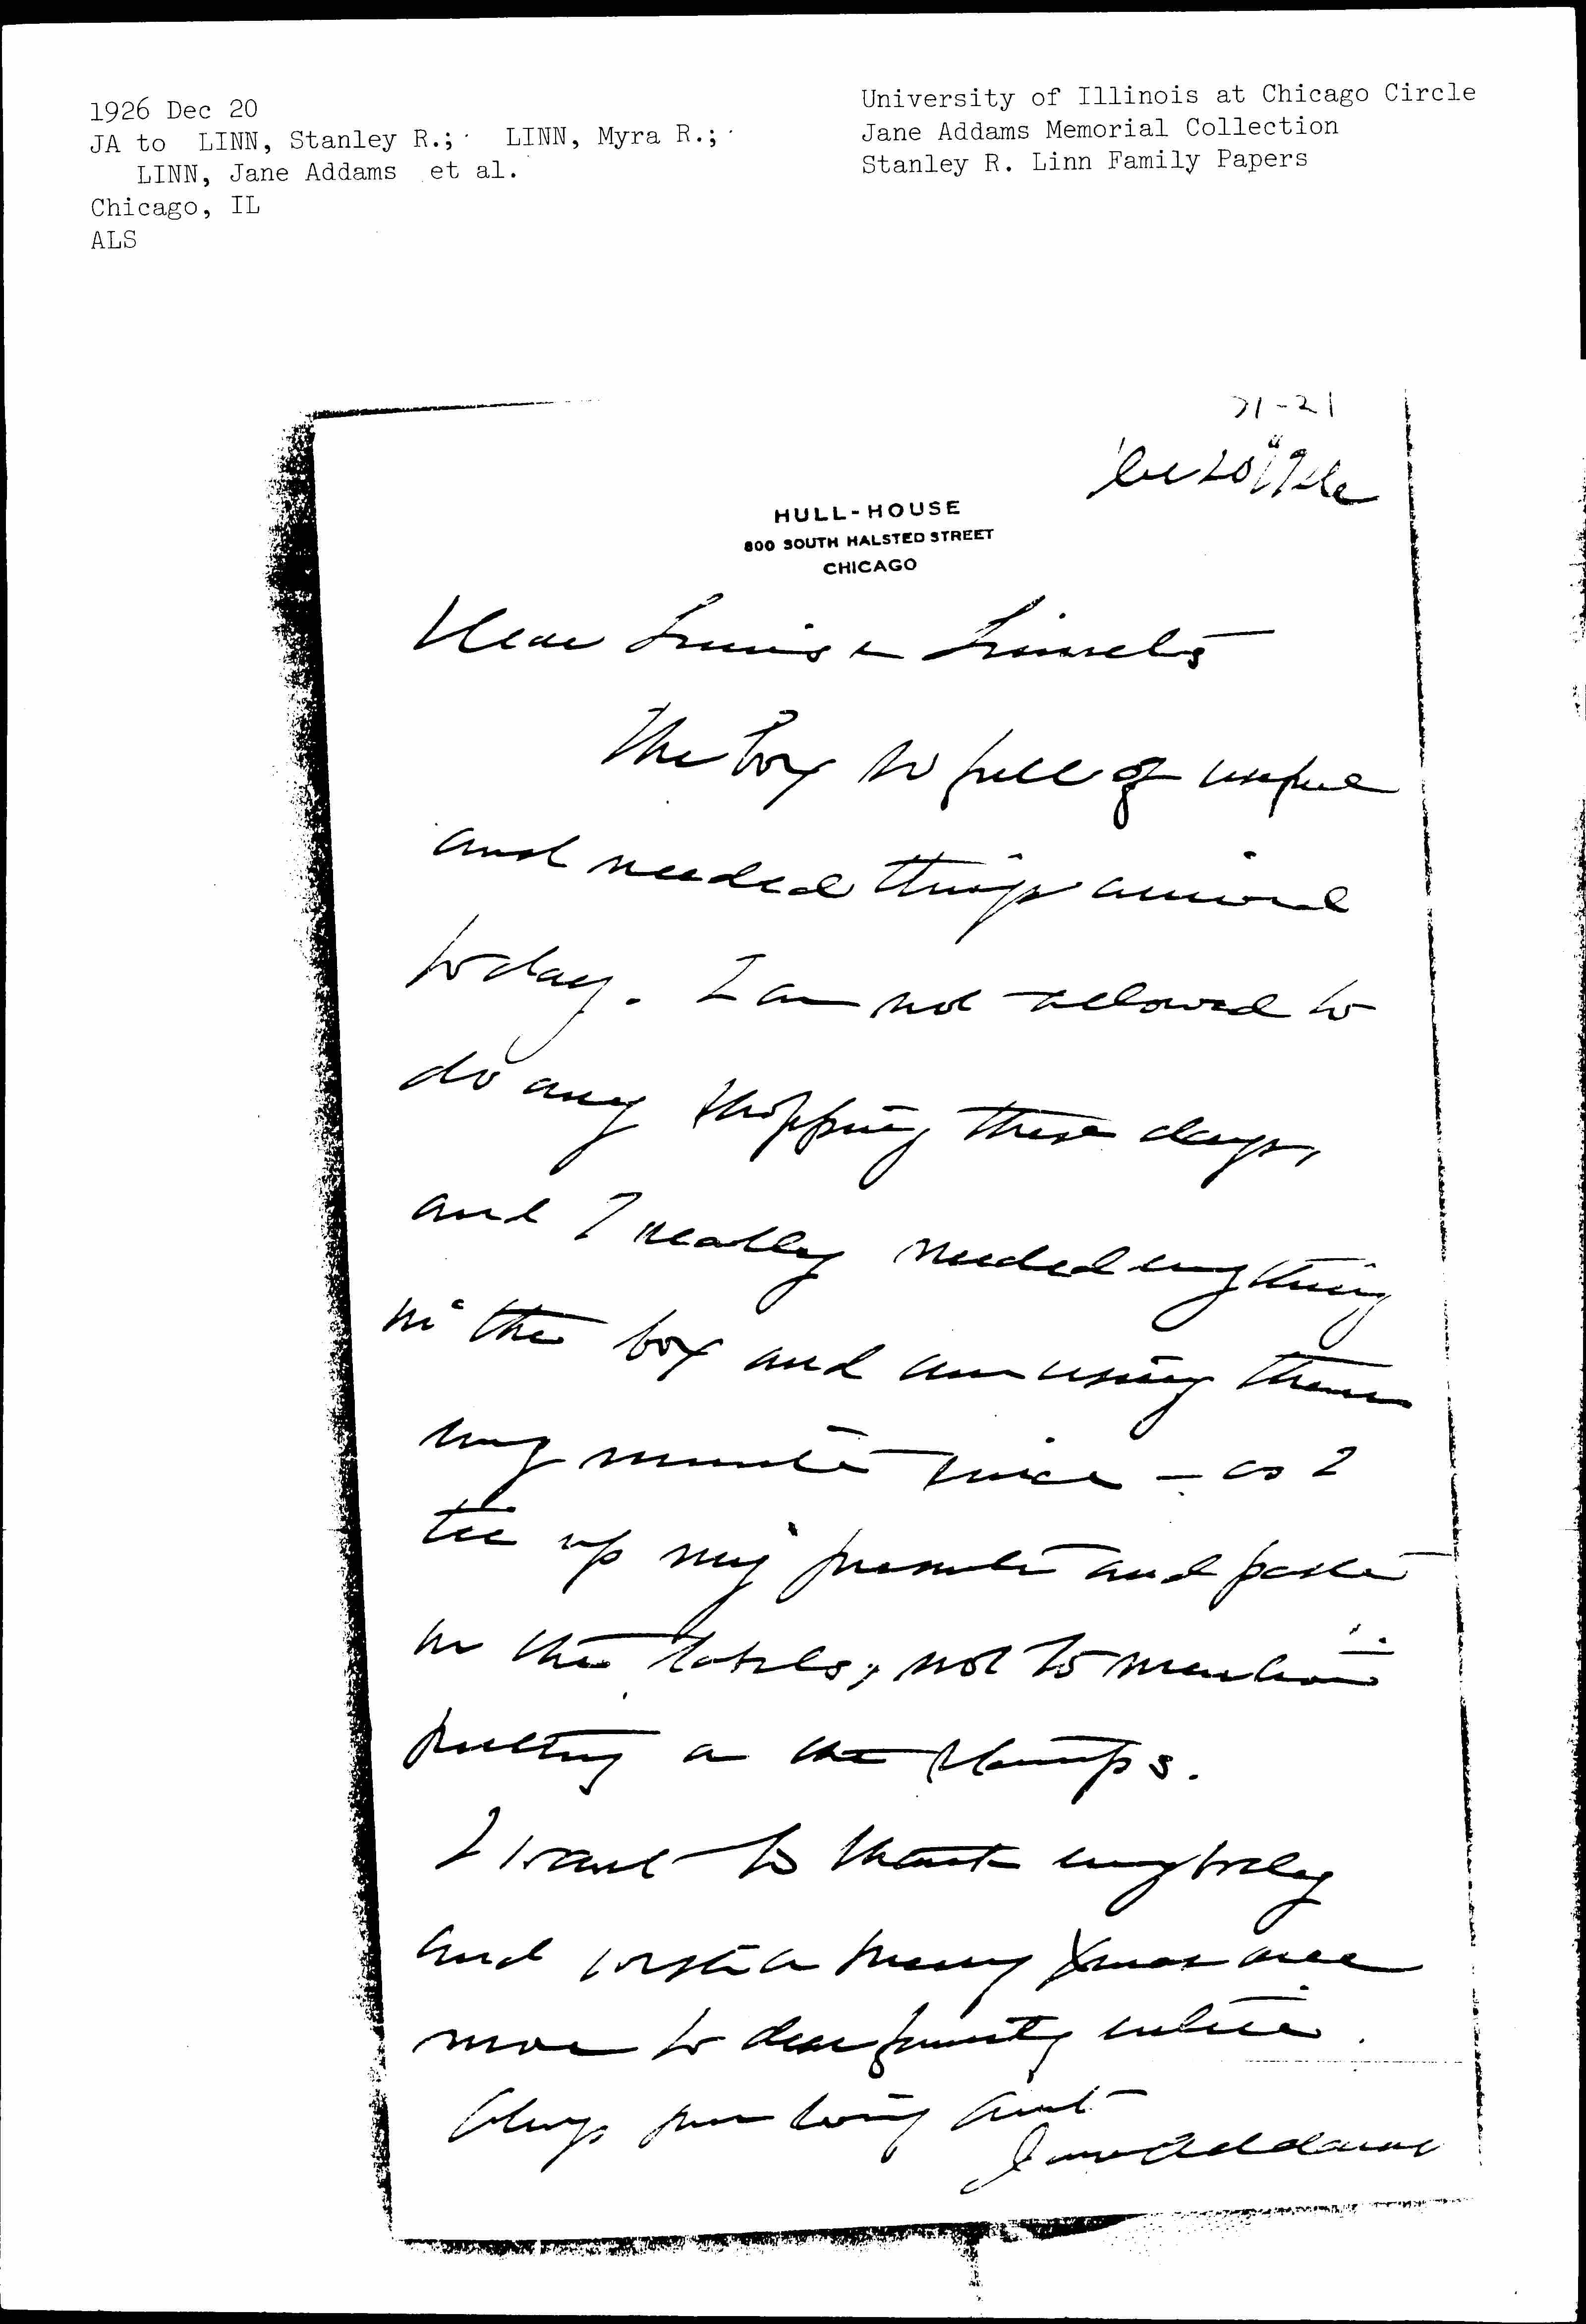 1926 Dec 20
JA to LINN, Stanley R.; LINN, Myra R.;
LINN, Jane Addams et al.
Chicago, IL
ALS
University of Illinois at Chicago Circle
Jane Addams Memorial Collection
Stanley R. Linn Family Papers
71-21
Dec 20" 1926
HULL-HOUSE
800 SOUTH HALSTED STREET
CHICAGO
Dear Linns & Linnets
The box so full of useful
and needed things arrived
today. I am not allowed to
do any shopping these days,
and I really needed everything
in the box and am using them
every minute since — as I
tie up my presents and paste
on the labels, not to mention
putting on the stamps.
I want to thank everybody
and wish a merry Xmas once
more to dear family entire.
Always your loving aunt
Jane Addams